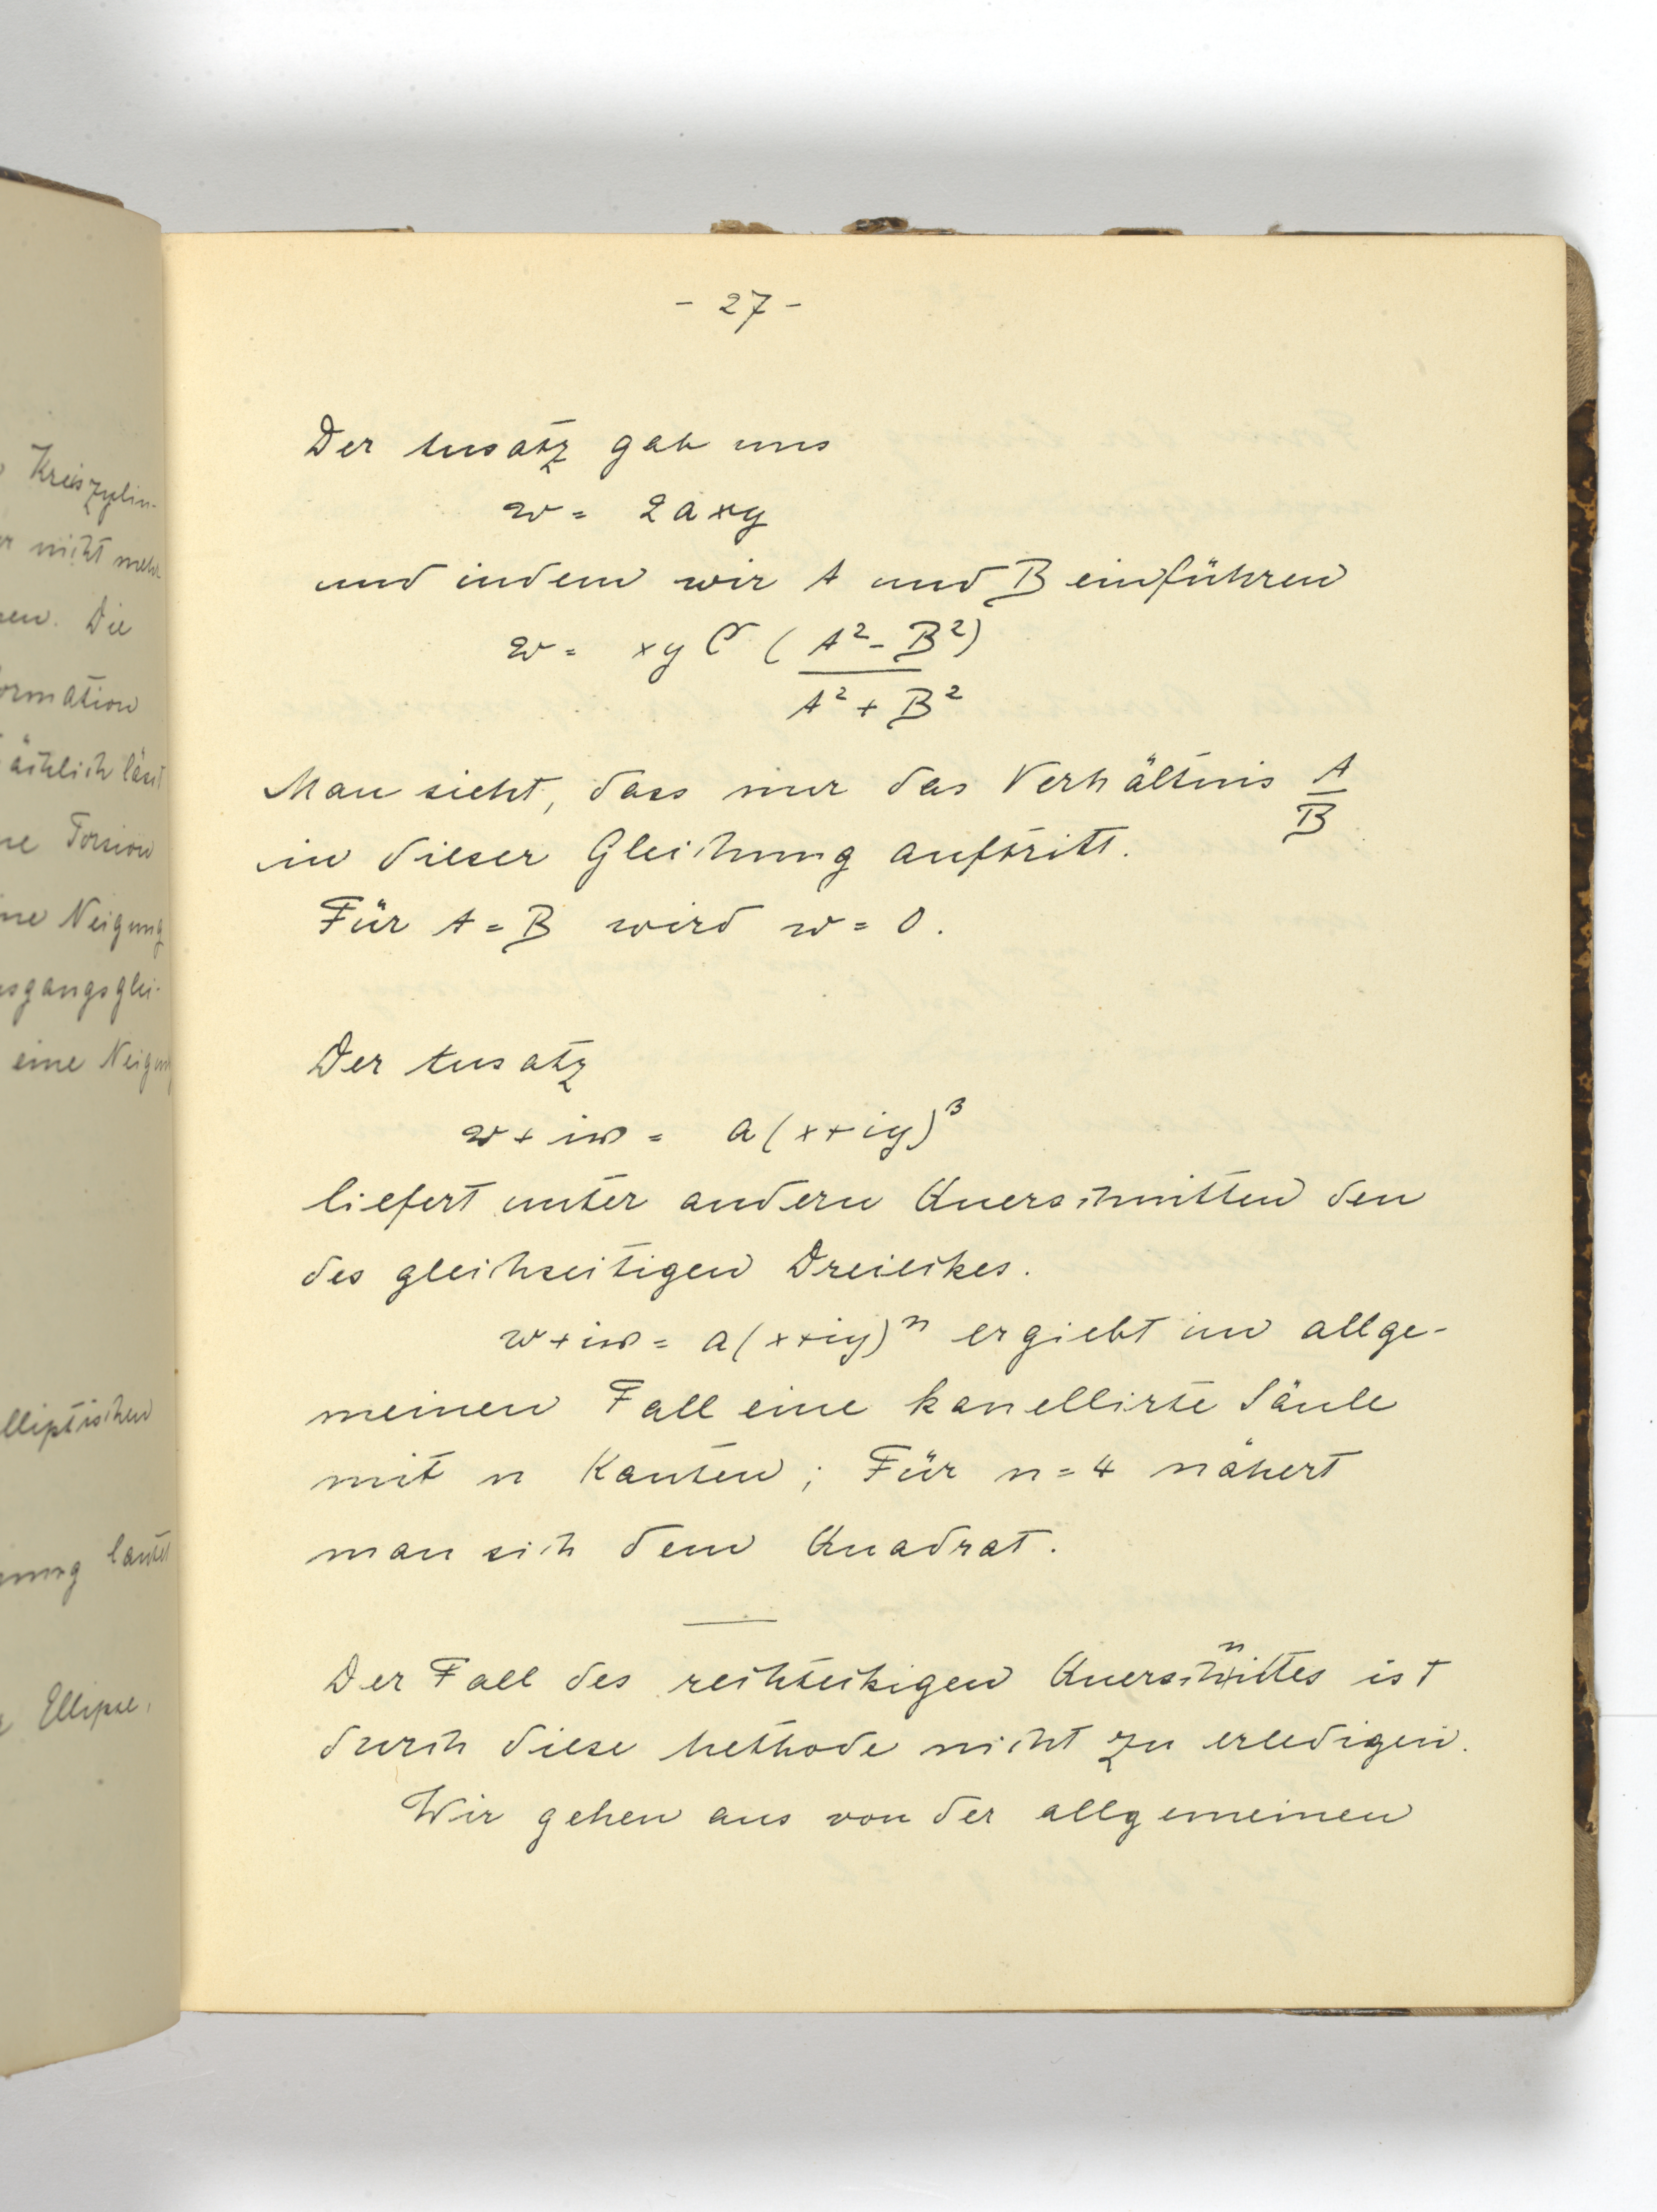 - 27 -
Der Ansatz gab uns
w = 2axy
und indem wir A und B einführen
w = xy C (A² - B²)
A² + B²
Man sieht, dass nur das Verhältnis A/B
in dieser Gleichung auftritt.
Für A = B wird w = 0.
Der Ansatz
w + iw = a(x+iy)³
liefert unter andern Querschnitten den
des gleichseitigen Dreiecks.
w + iw = a(x+iy)ⁿ ergiebt im allge-
meinen Fall eine kanellirte Säule
mit n Kanten; Für n = 4 nähert
man sich dem Quadrat.
Der Fall des rechteckigen Querschnittes ist
durch diese Methode nicht zu erledigen.
Wir gehen aus von der allgemeinen
Kreiszylin-
nicht mehr
Die
ormation
ächlich lässt
Torsion
ne Neigung
sgangsglei-
eine Neigung
lliptischen
lautet
Ellipse.